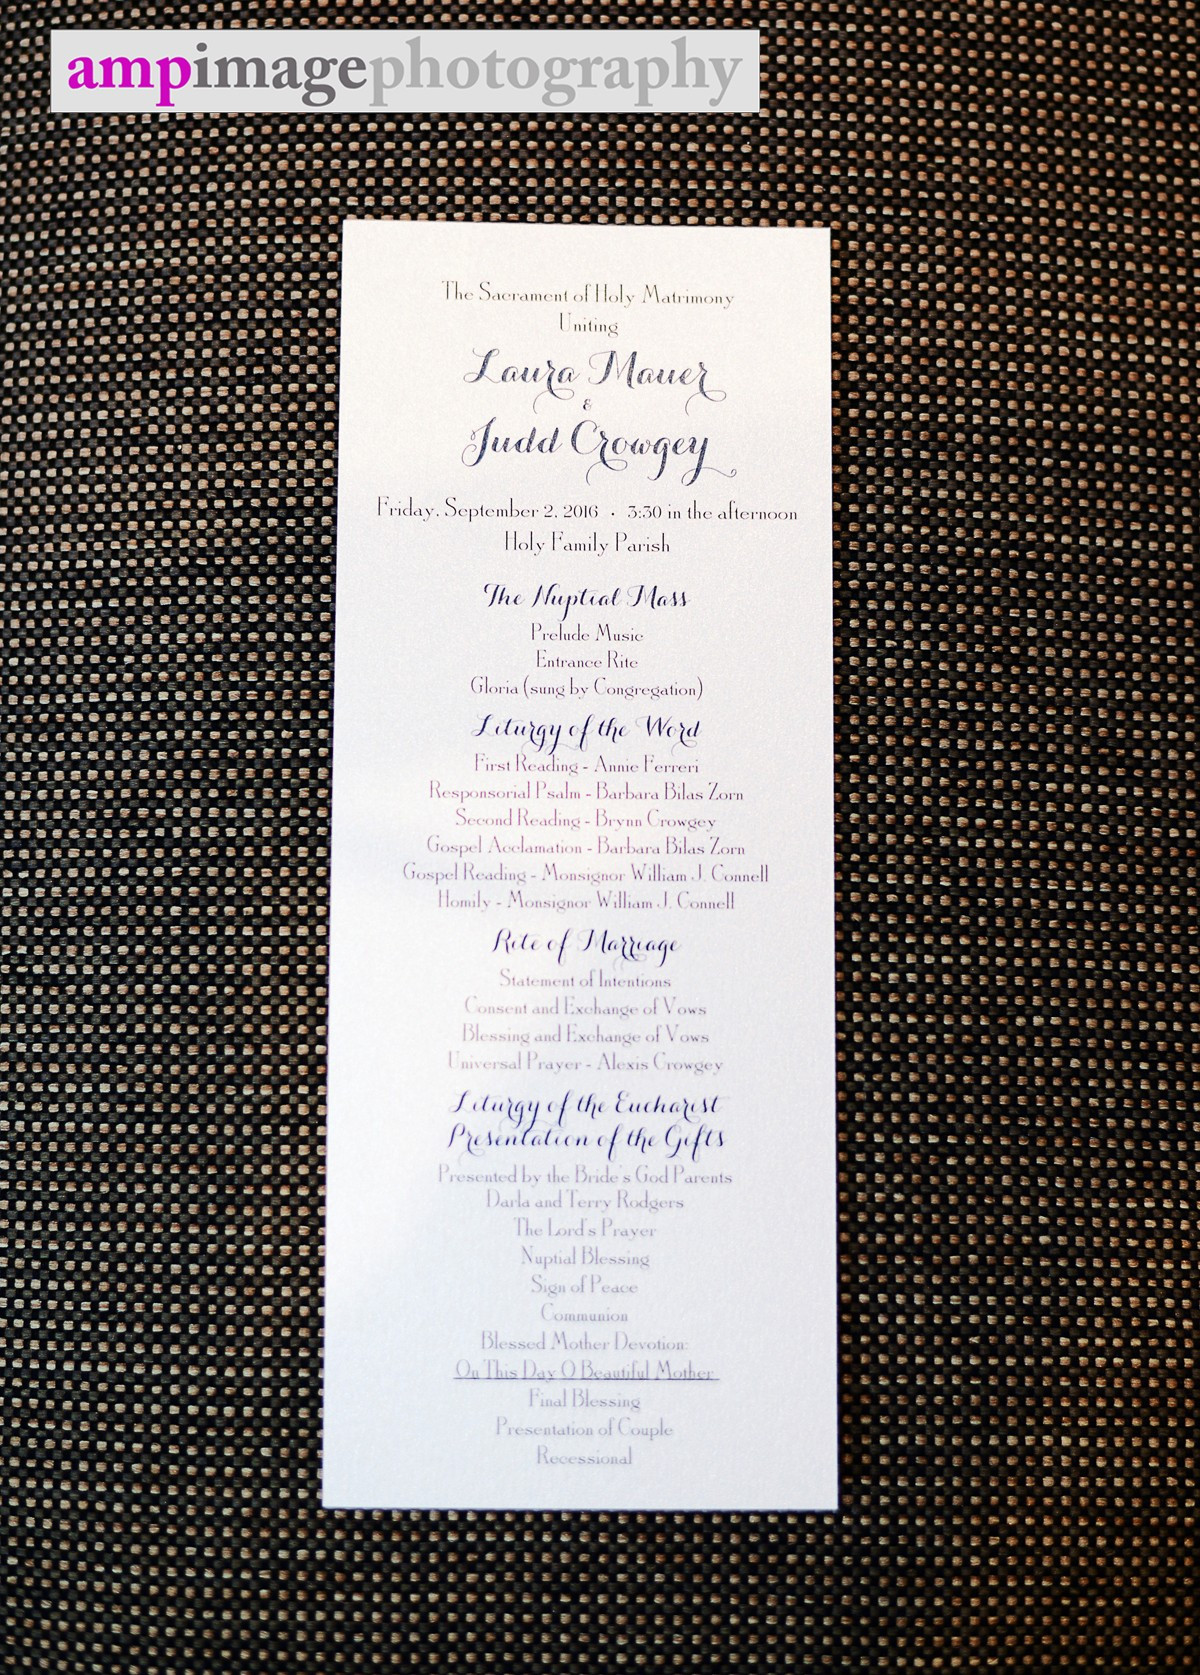 ampimagephotography
The Sacrament of Holy Matrimony
Uniting
Laura Mauer
&
Judd Crowgey
Friday, September 2, 2016 · 3:30 in the afternoon
Holy Family Parish
The Nuptial Mass
Prelude Music
Entrance Rite
Gloria (sung by Congregation)
Liturgy of the Word
First Reading - Annie Ferreri
Responsorial Psalm - Barbara Bilas Zorn
Second Reading - Brynn Crowgey
Gospel Acclamation - Barbara Bilas Zorn
Gospel Reading - Monsignor William J. Connell
Homily - Monsignor William J. Connell
Rite of Marriage
Statement of Intentions
Consent and Exchange of Vows
Blessing and Exchange of Vows
Universal Prayer - Alexis Crowgey
Liturgy of the Eucharist
Presentation of the Gifts
Presented by the Bride's God Parents
Darla and Terry Rodgers
The Lord's Prayer
Nuptial Blessing
Sign of Peace
Communion
Blessed Mother Devotion:
On This Day O Beautiful Mother
Final Blessing
Presentation of Couple
Recessional